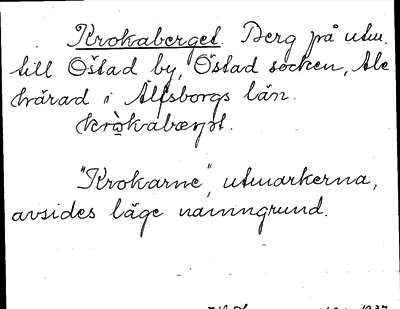 Krokaberget. Berg på utm.
till Östad by, Östad socken, Ale
härad i Älfsborgs län.
"Krokarne", utmarkerna,
avsides läge namngrund.